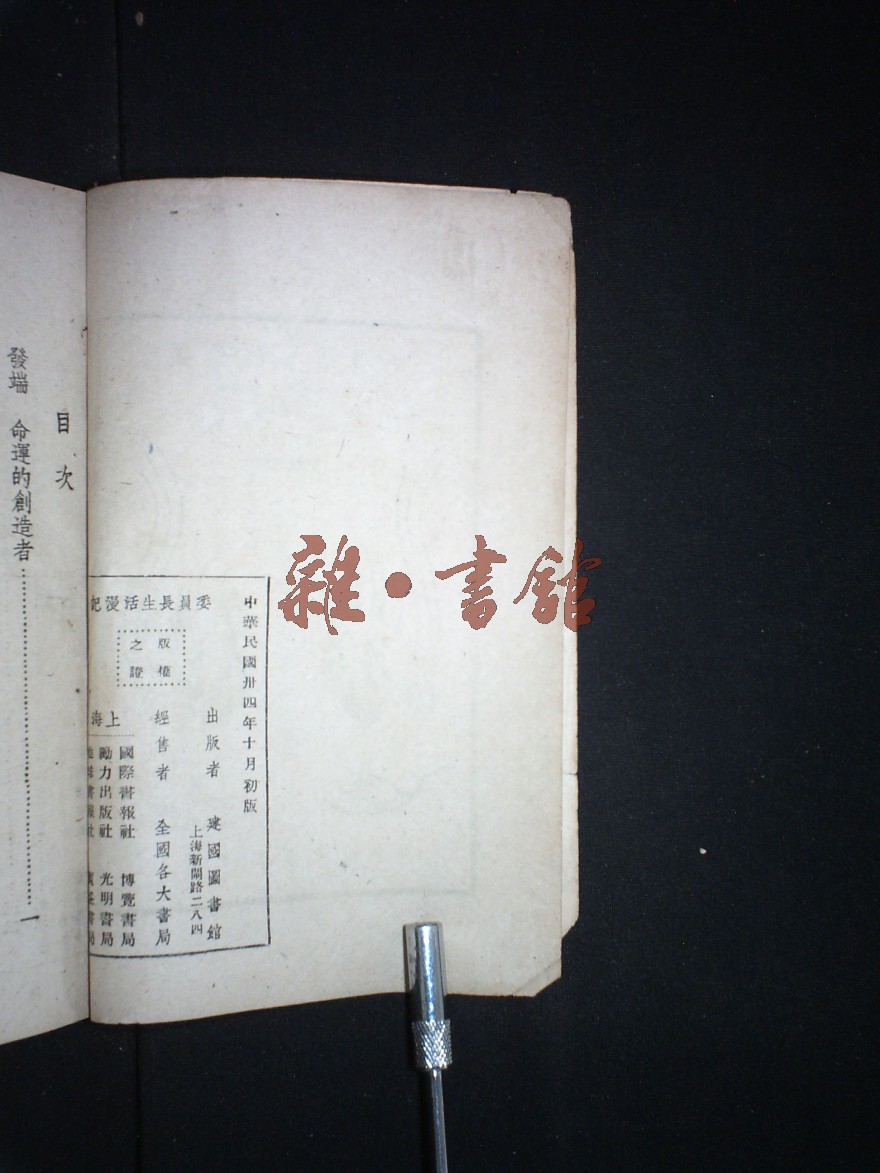 雜·書館
中華民國卅四年十月初版
委員長生活漫記
版權
之證
出版者 建國圖書館
上海新閘路二八四
經售者 全國各大書局
上海
國際書報社 博覽書局
勵力出版社 光明書局
書報社 書局
目次
發端 命運的創造者……………………一